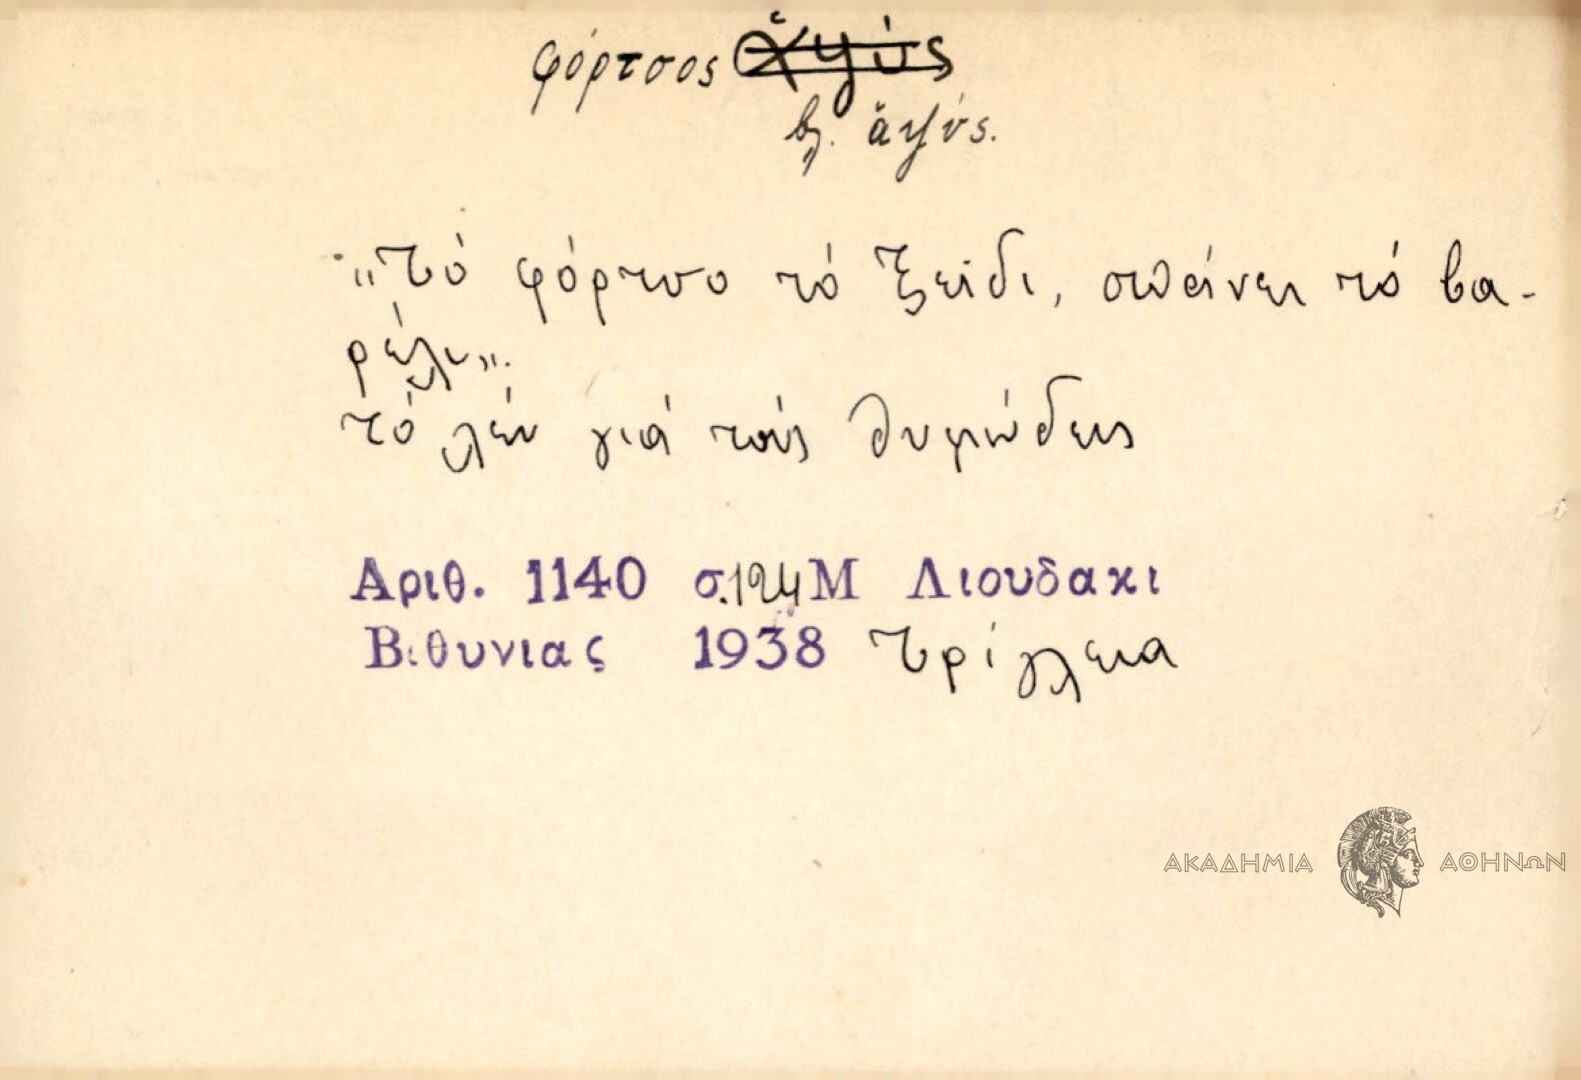 φόρτσος ἀψύς
βλ. ἀψύς.
"Τό φόρτσο τό ξείδι, σπάνει τό βα-
ρέλι".
τό λέν γιά τούς θυμώδεις
Αριθ. 1140 σ.124 Μ Λιουδακι
Βιθυνιας 1938 Τρίγλεια
ΑΚΑΔΗΜΙΑ ΑΘΗΝΩΝ